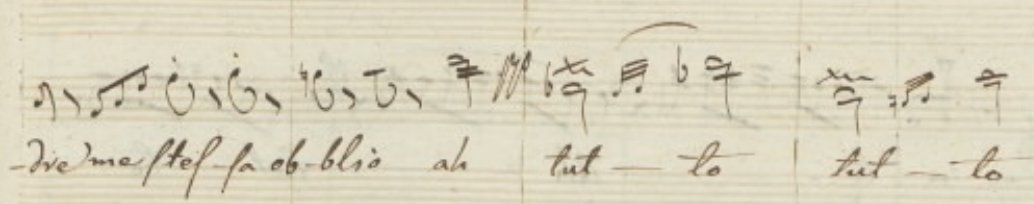 -dre me stes-sa ob-blio ah tut — to tut — to